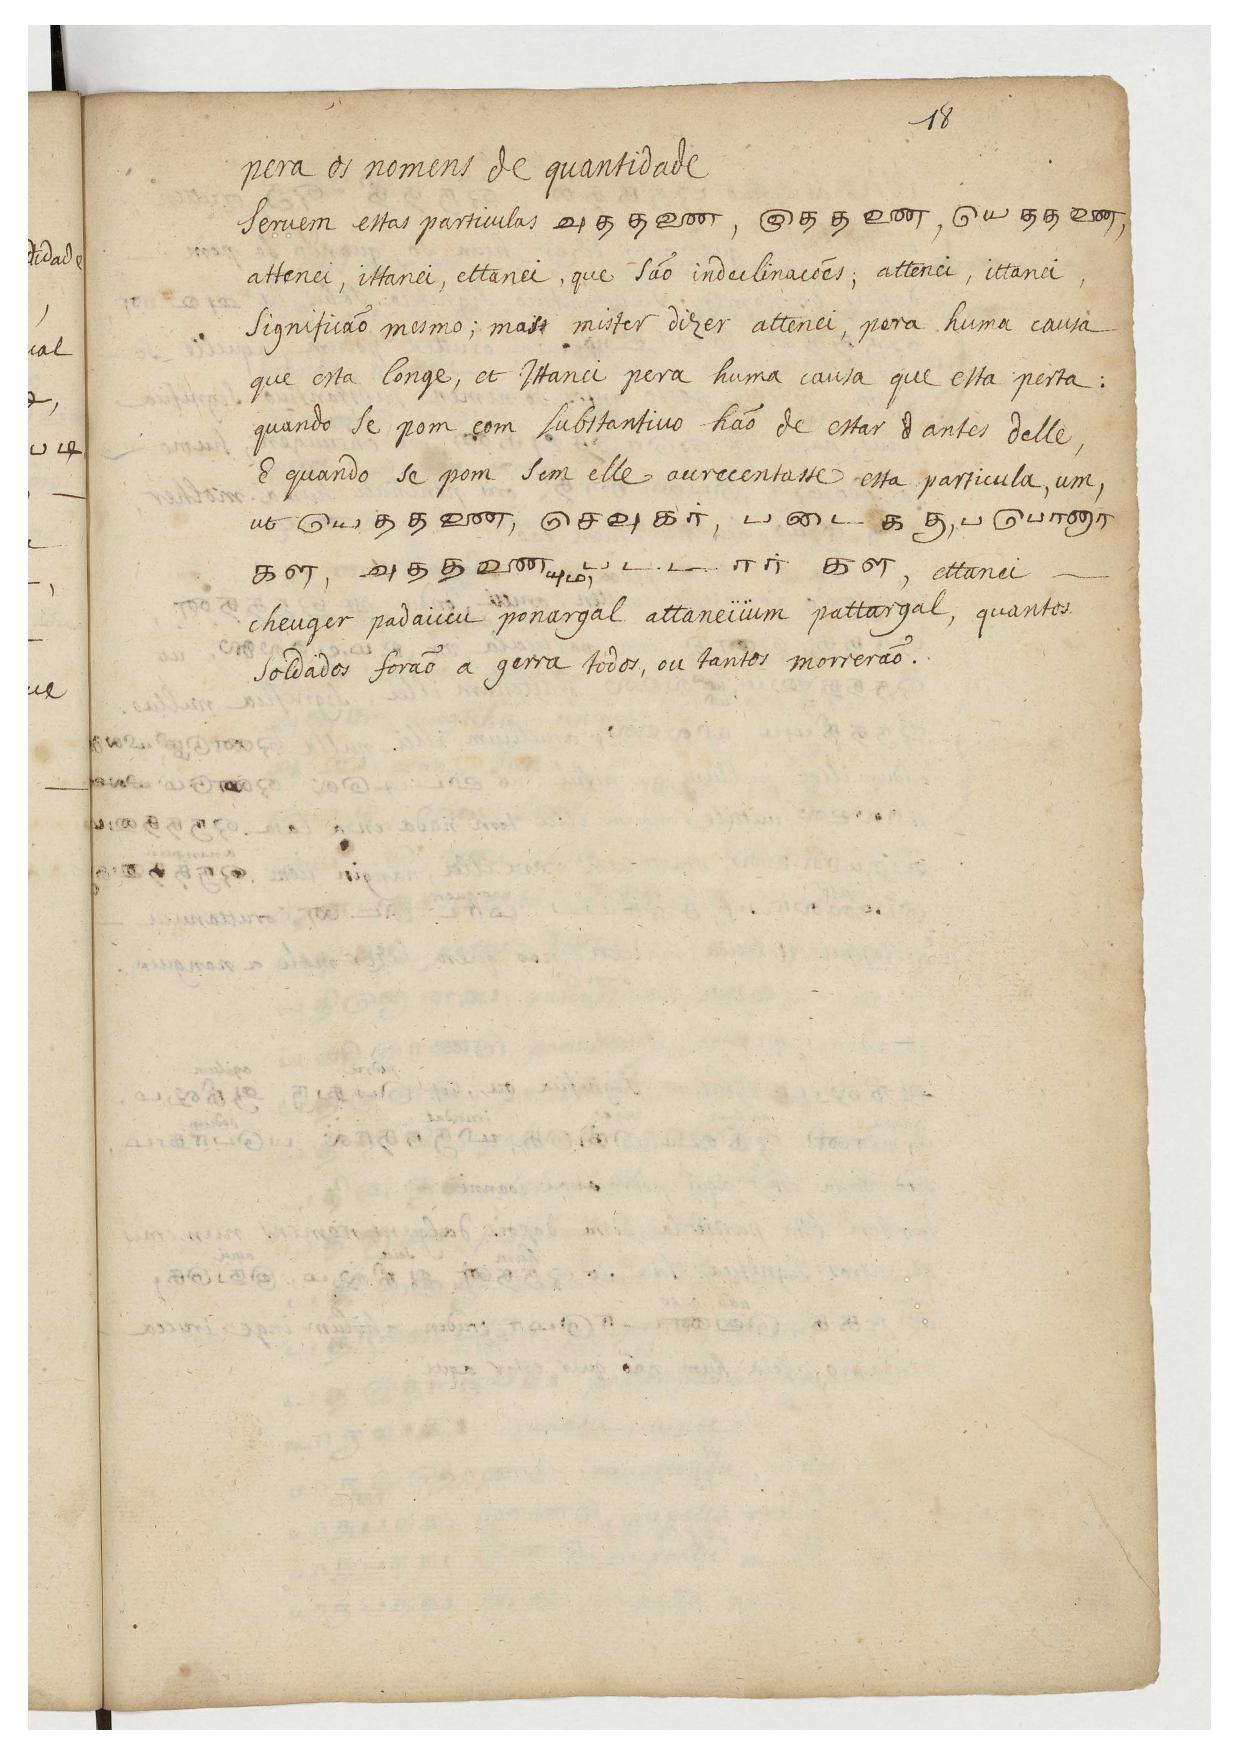 18
pera os nomens de quantidade
Seruem estas particulas அததணை, இததணை, யெததணை,
attenei, ittanei, ettanei, que São indeclinacões; attenei, ittanei,
Significão mesmo; mais mister dizer attenei, pera huma causa
que esta longe, et Ittanei pera huma causa que esta perta:
quando Se pom com Substantiuo hão de estar d antes delle,
E quando se pom Sem elle accrecentasse esta particula, um,
ut யெததணை, செவுகர், படைககு, பபொனார
கள, அததணையும, படடார்கள, ettanei
cheuger padaiccu ponargal attaneiium pattargal, quantos
Soldados forão a gerra todos, ou tantos morrerão.